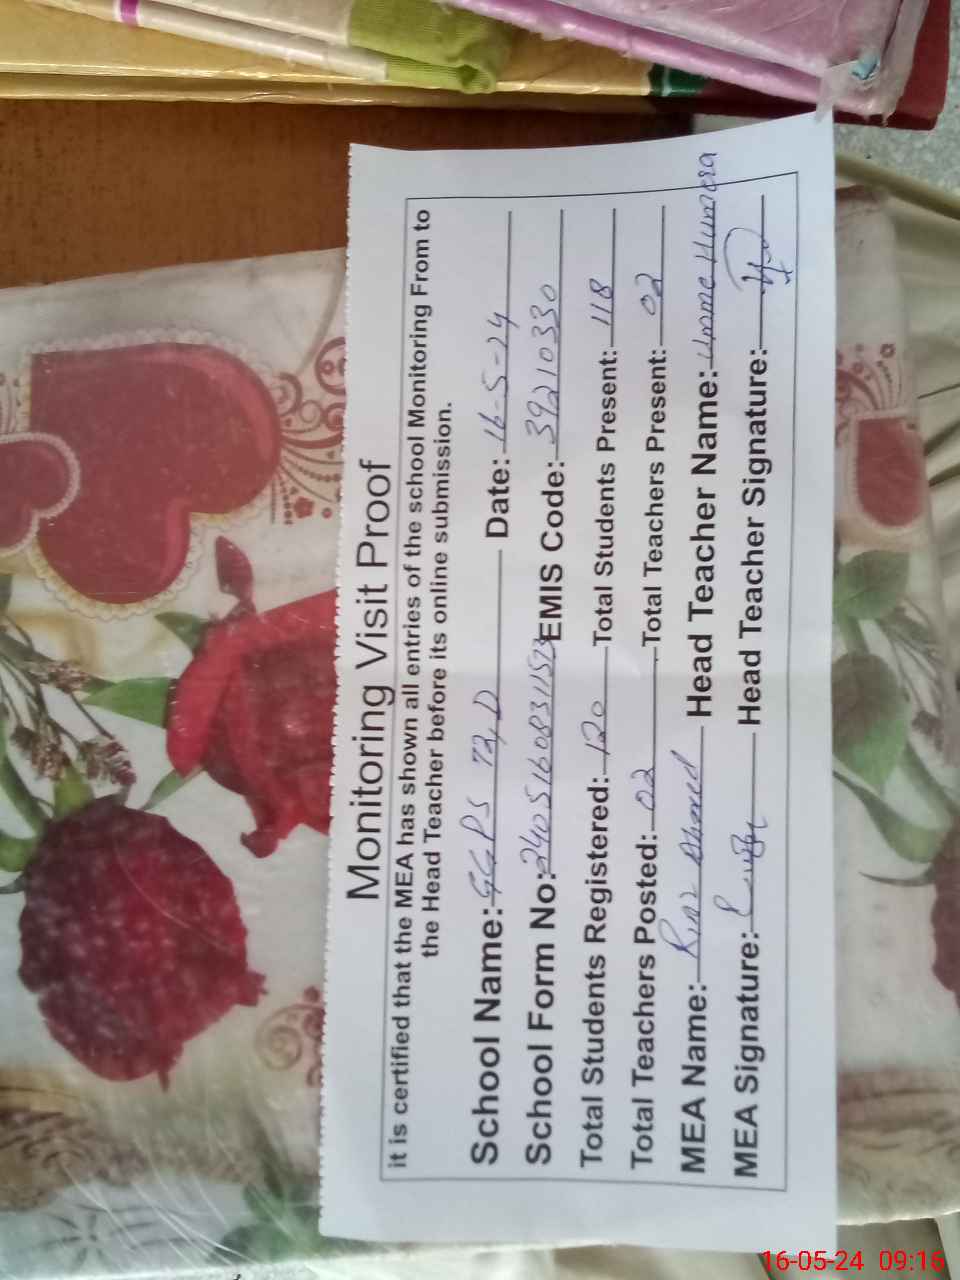 Monitoring Visit Proof
it is certified that the MEA has shown all entries of the school Monitoring From to
the Head Teacher before its online submission.
School Name: GGPS 72,D Date: 16-5-24
School Form No: 24051608311573 EMIS Code: 39210330
Total Students Registered: 120 Total Students Present: 118
Total Teachers Posted: 02 Total Teachers Present: 02
MEA Name: Riaz Ahmed Head Teacher Name: Umme Humera
MEA Signature: Head Teacher Signature:
16-05-24 09:16